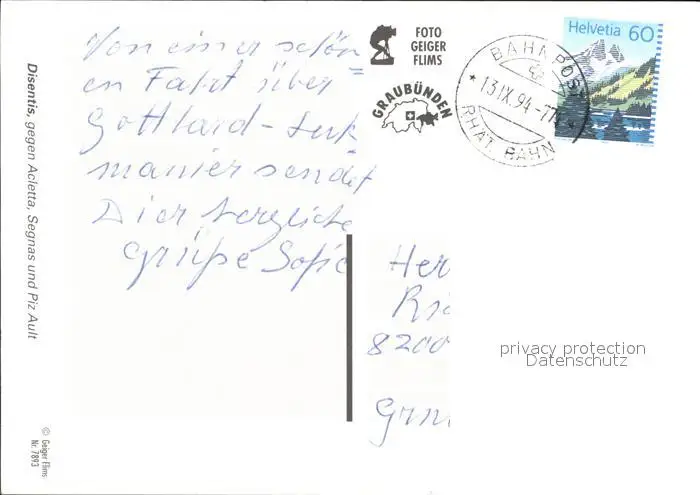 Von einer schön
en Fahrt über
Gotthard-Luk
manier sendet
Dier herzliche
Grüße Sofie
FOTO
GEIGER
FLIMS
GRAUBÜNDEN
BAHNPOST
13.IX.94
RHÄT. BAHN
Helvetia 60
Her
8200
privacy protection
Datenschutz
Disentis, gegen Acletta, Segnas und Piz Ault
© Geiger Flims
Nr. 7893